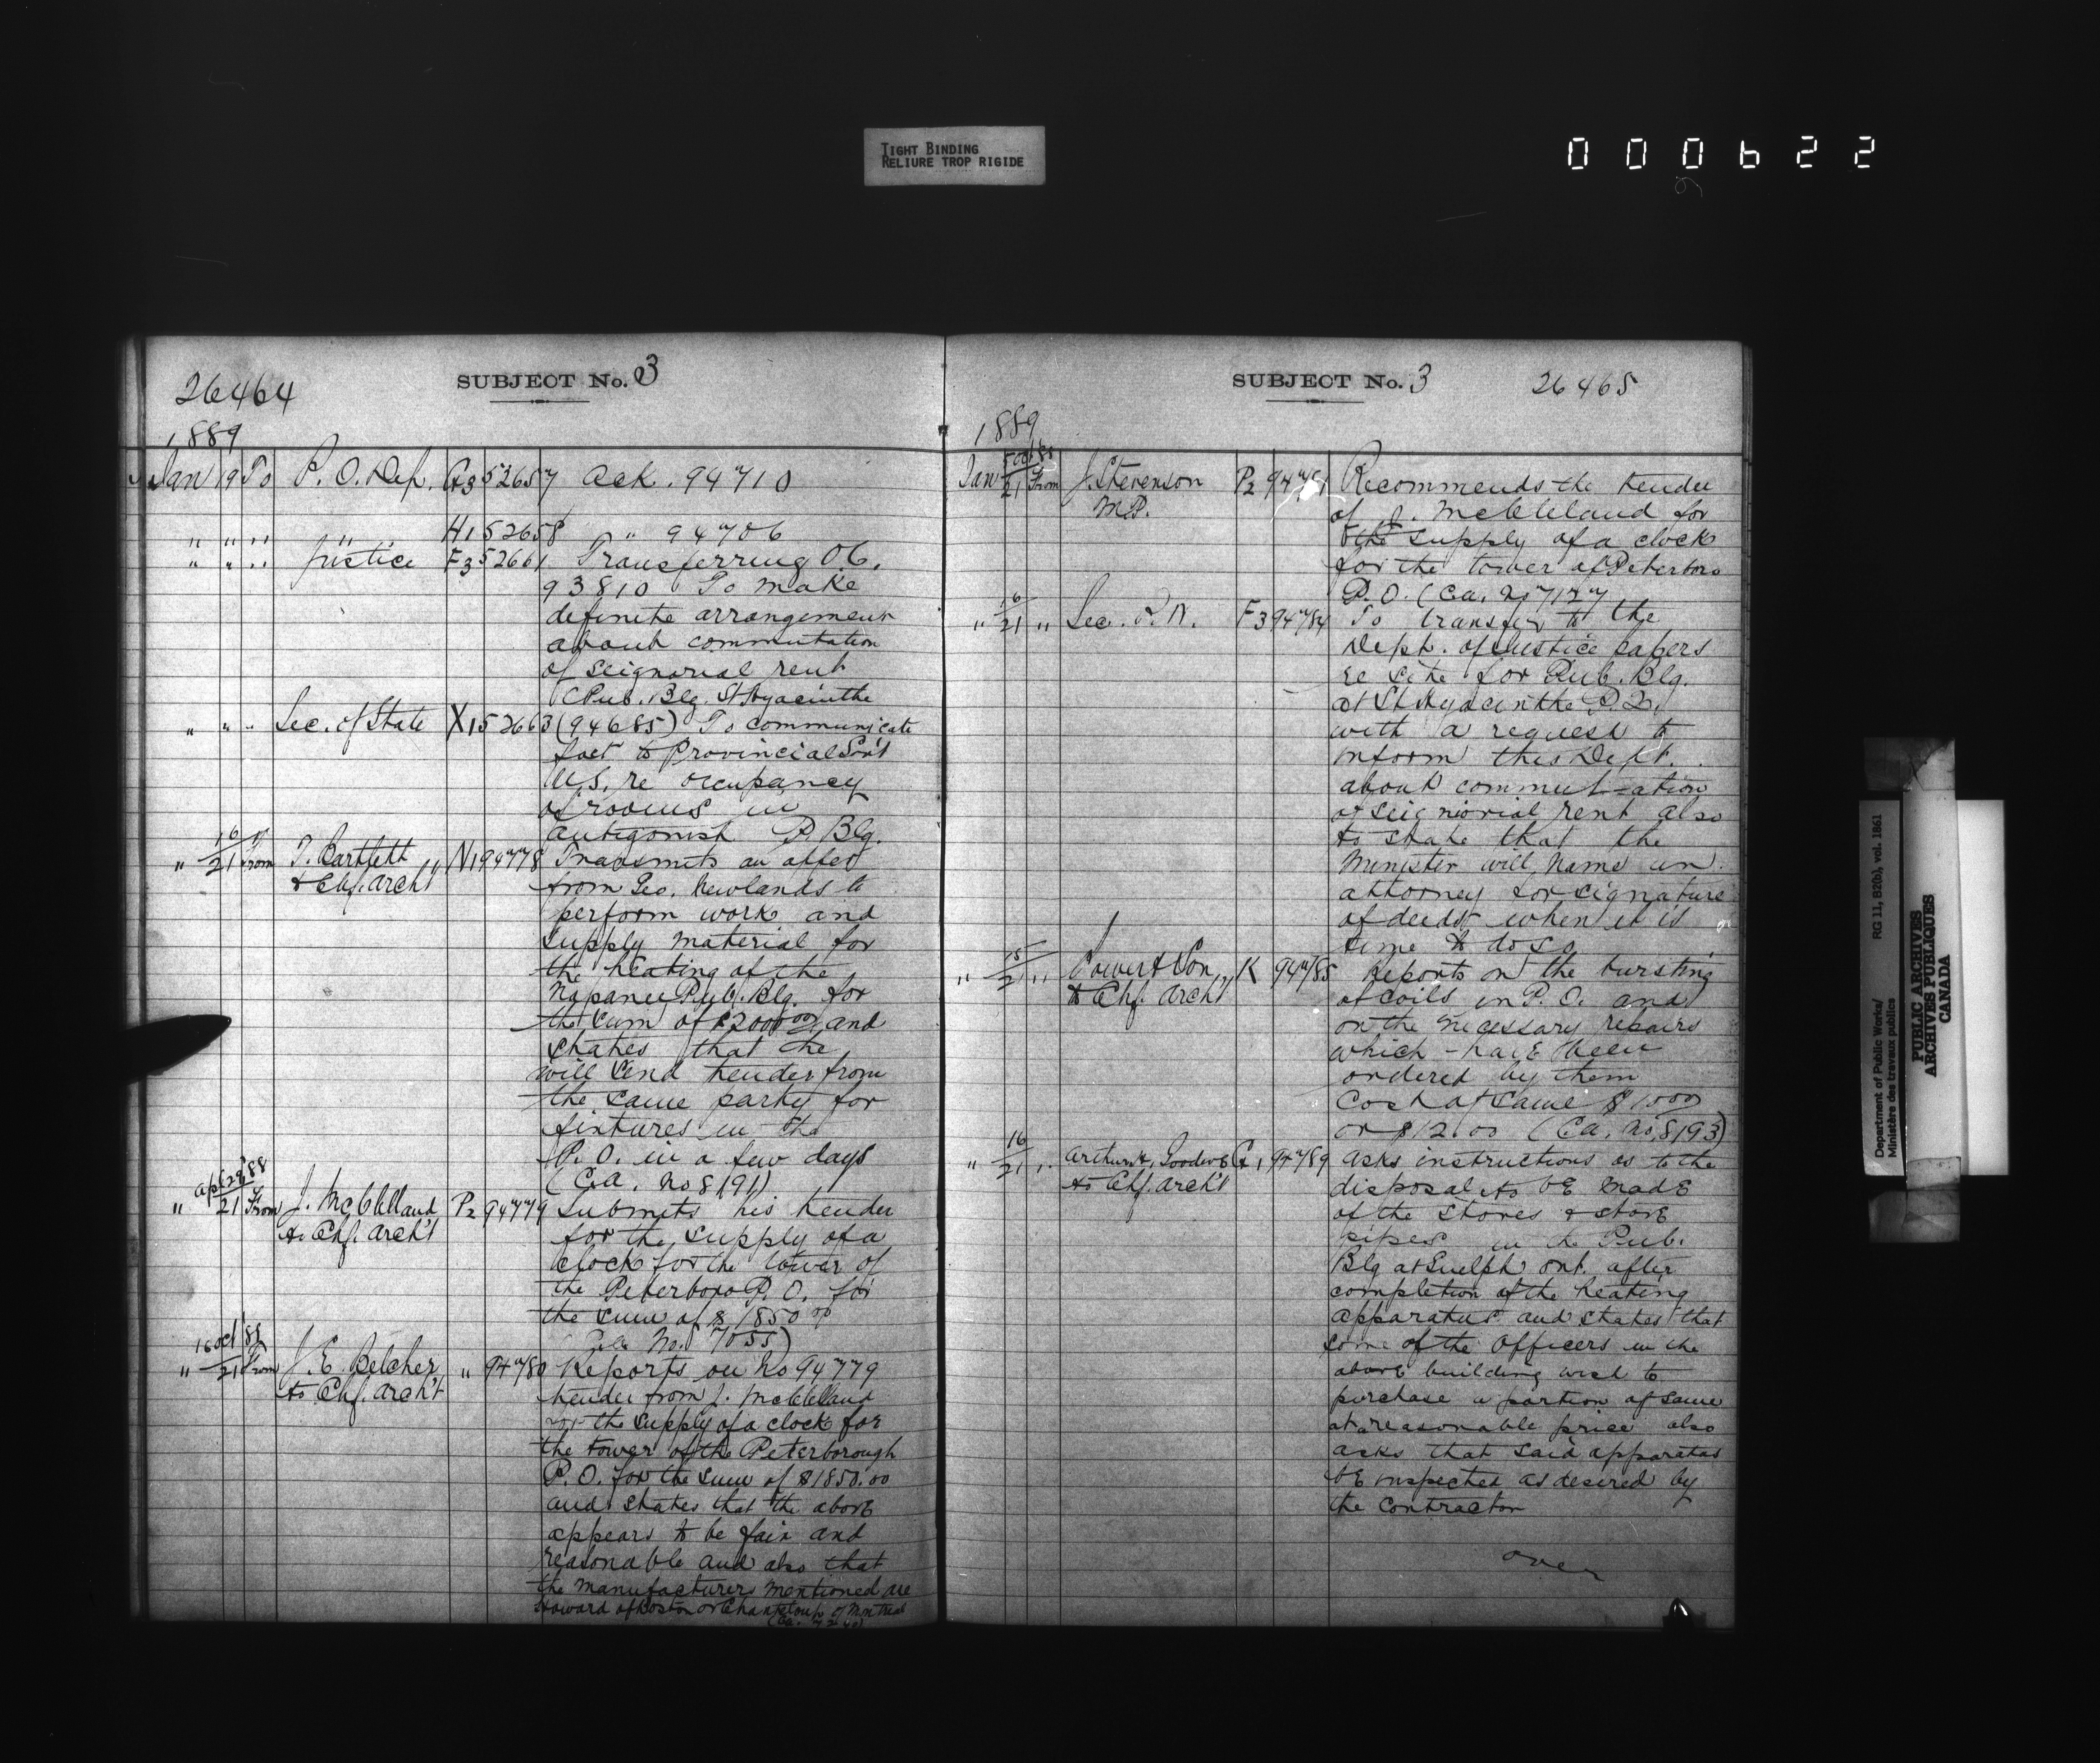 TIGHT BINDING
RELIURE TROP RIGIDE
000622
26464
SUBJECT No. 3
1889
Jan 19 To P. O. Dep. G3 52657 Ack. 94710
" " " " H1 52658 " 94706
" " " Justice F3 52661 Transferring O.C.
93810 To make
definite arrangement
about commutation
of seignorial rent
(Pub. Blg. St Hyacinthe
" " " Sec. of State X1 52663 (94685) To communicate
fact to Provincial Gov't
N.S. re occupancy
of rooms in
Antigonish P. Blg.
" 16/21 From T. Bartlett N1 94778 Transmits an offer
to Chf. Arch't
from Geo. Newlands to
perform work and
supply material for
the heating of the
Napanee Pub. Blg. for
the sum of $2000.00 and
states that he
will send tender from
the same party for
fixtures in the
P. O. in a few days
(Ca. No 8191)
" 21 From J. McClelland P2 94779 Submits his tender
to Chf. Arch't
for the supply of a
clock for the tower of
the Peterboro P. O. for
the sum of $1850.00
No. 7055)
" 16 Oct 88/21 From J. E. Belcher " 94780 Reports on No 94779
to Chf. Arch't
tender from J. McClelland
for the supply of a clock for
the tower of the Peterborough
P. O. for the sum of $1850.00
and states that the above
appears to be fair and
reasonable and also that
the manufacturers mentioned are
Howard of Boston or Chanteloup of Montreal
SUBJECT No. 3
26465
1889
Jan 21 From J. Stevenson P2 94781 Recommends the tender
M.P.
of J. McClleland for
the supply of a clock
for the tower of Peterboro
P. O. (Ca. No 7127
" 16/21 " Sec. P. W. F3 94784 To transfer to the
Dept. of Justice papers
re site for Pub. Blg.
at St Hyacinthe P.Q.
with a request to
inform this Dept.
about commutation
of seigniorial rent also
to state that the
Minister will name an
attorney for signature
of deeds when it is
time to do so
" 15/21 " Power & Son K 94785 Reports on the bursting
to Chf. Arch't
of coils in P. O. and
on the necessary repairs
which have been
ordered by them
Cost of same $10.00
or $12.00 (Ca. No. 8193)
" 16/21 " Arthur H. G1 94789 Asks instructions as to the
to Chf. Arch't
disposal to be made
of the stoves & stove
pipes in the Pub.
Blg at Guelph Ont. after
completion of the heating
apparatus and states that
some of the Officers in the
above building wish to
purchase a portion of same
at reasonable price also
asks that said apparatus
be inspected as desired by
the contractor
over
Department of Public Works/ RG 11, B2(b), vol. 1861
Ministère des travaux publics
PUBLIC ARCHIVES
ARCHIVES PUBLIQUES
CANADA